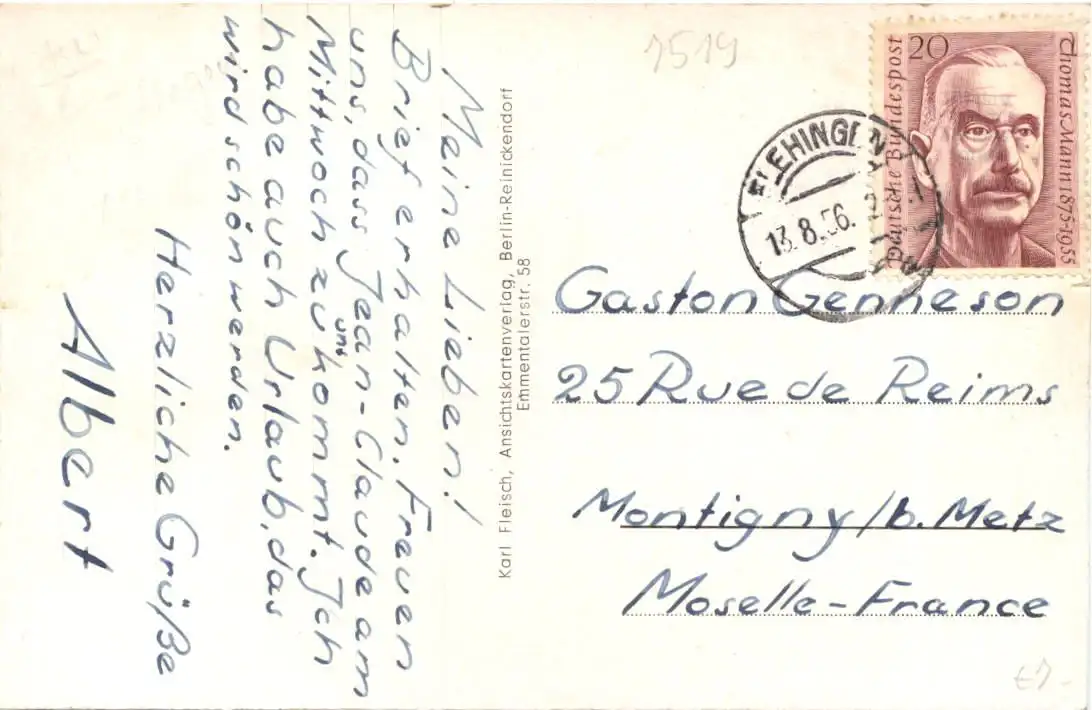 Meine Lieben!
Brief erhalten. Freuen
uns, dass Jean-Claude am
Mittwoch zu unt kommt. Ich
habe auch Urlaub, das
wird schön werden.
Herzliche Grüße
Albert
Karl Fleisch, Ansichtskartenverlag, Berlin-Reinickendorf
Emmentalerstr. 58
1519
20
Deutsche Bundespost
Thomas Mann 1875-1955
FLEHINGEN
13.8.56.
Gaston Genneson
25 Rue de Reims
Montigny/b. Metz
Moselle-France
€1-